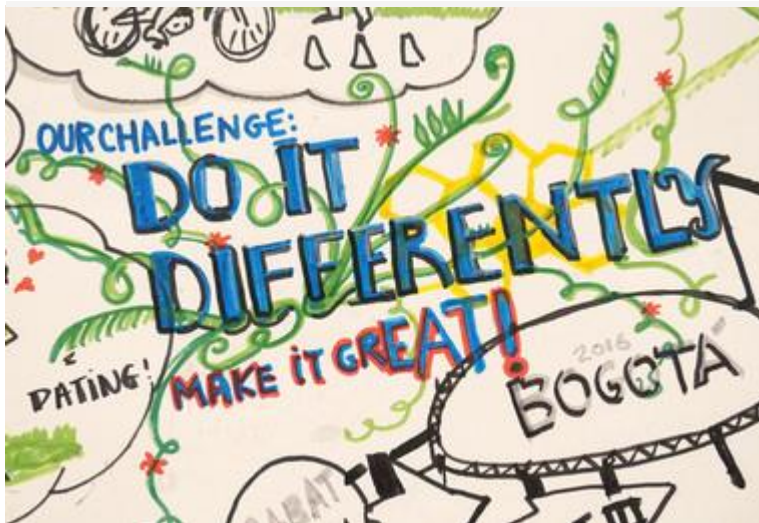 OUR CHALLENGE:
DO IT
DIFFERENTLY
MAKE iT GREAT!
DATING!
2016
BOGOTA
RABAT